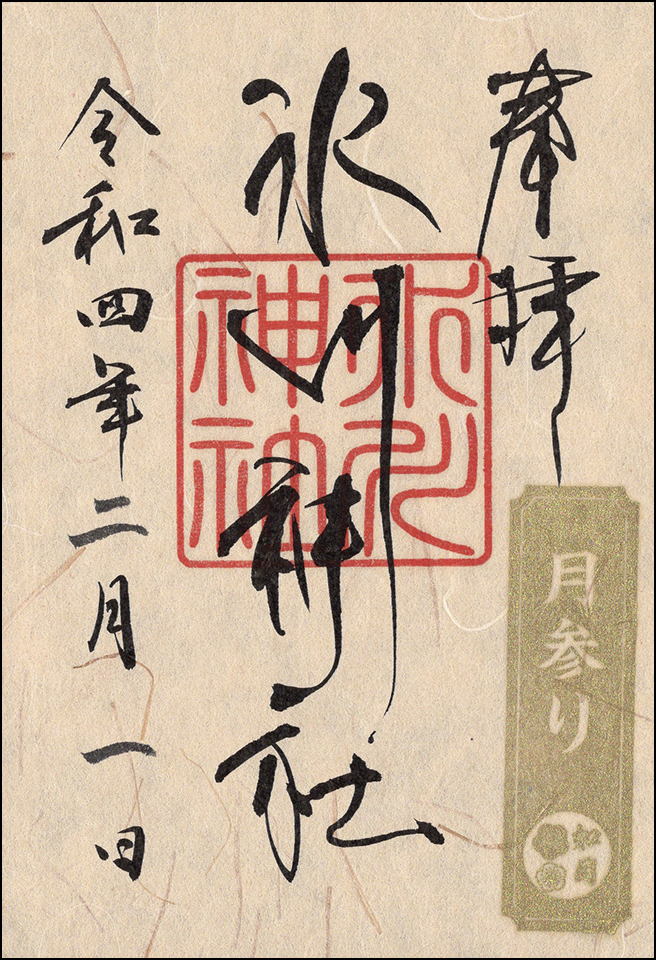 奉拝
月参り
如月
氷川神社
氷川神社
令和四年二月一日